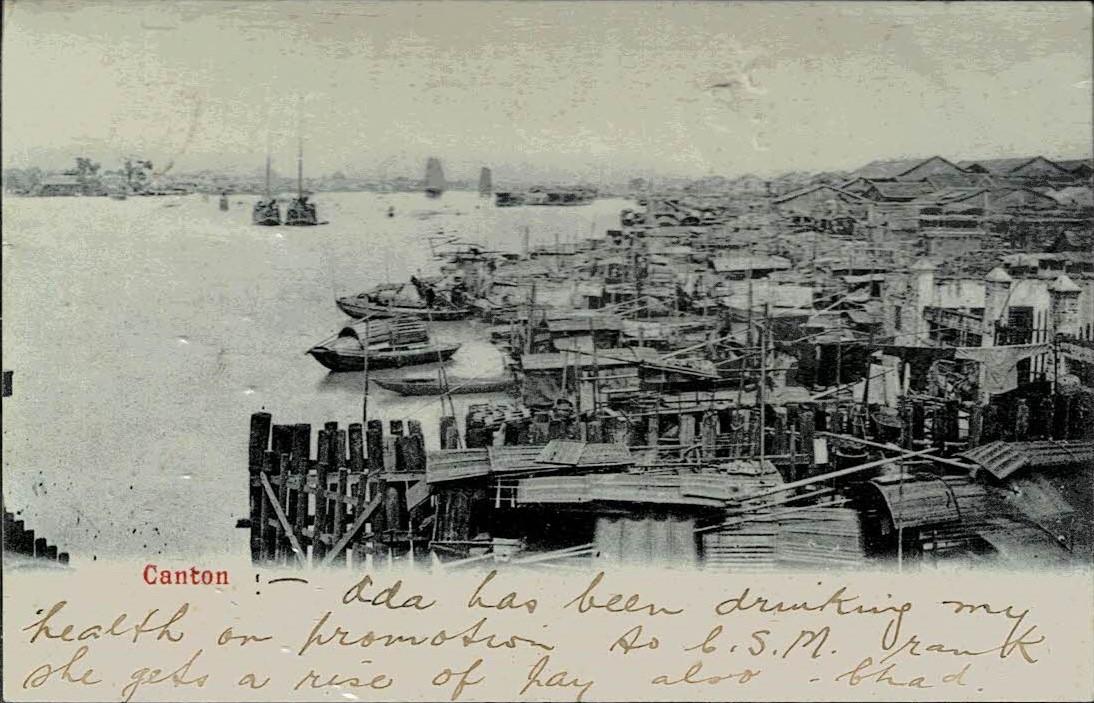 Canton :— Ada has been drinking my
health on promotion to C.S.M. rank
she gets a rise of pay also - Chad.